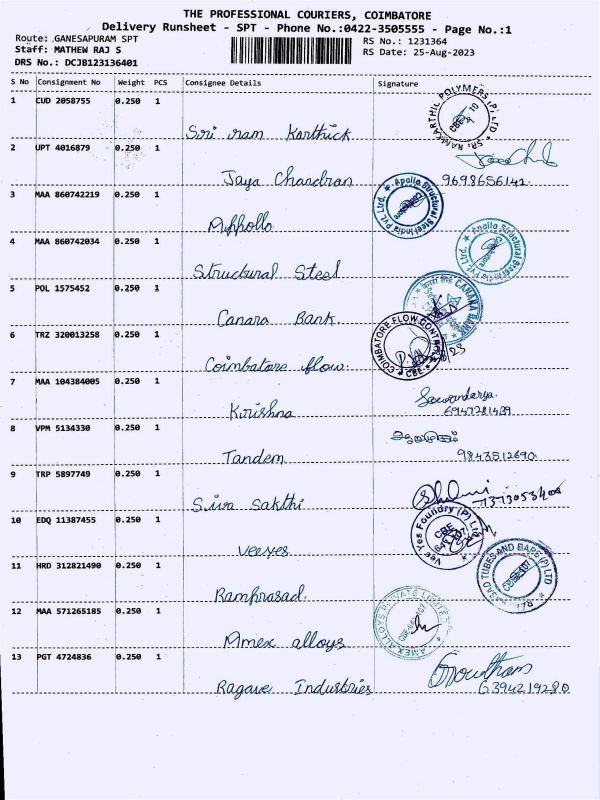 THE PROFESSIONAL COURIERS, COIMBATORE
Delivery Runsheet - SPT - Phone No.:0422-3505555 - Page No.:1
Route: .GANESAPURAM SPT
RS No.: 1231364
Staff: MATHEW RAJ S
RS Date: 25-Aug-2023
DRS No.: DCJB123136401
S No Consignment No Weight PCS Consignee Details Signature
1 CUD 2058755 0.250 1
Siri ram Karthick
SRI RAMKARTHIL POLYMERS (P) LTD
2 UPT 4016879 0.250 1
Jaya Chandran 9698656142
3 MAA 860742219 0.250 1
Apollo Structural Steel India Pvt. Ltd.
Apphollo
4 MAA 860742034 0.250 1
Apollo Structural Steel India Pvt. Ltd.
Structural Steel
5 POL 1575452 0.250 1
CANARA BANK
Canara Bank.
6 TRZ 320013258 0.250 1
COIMBATORE FLOW CONTROL CBE
Coimbatore flow.
7 MAA 104384005 0.250 1
Sowndarya
Krishna
8 VPM 5134330 0.250 1
Tandem 9843512690
9 TRP 5897749 0.250 1
Siva sakthi 7373053406
10 EDQ 11387455 0.250 1
Vee Yes Foundry (P) Ltd
CBE
veeyes
11 HRD 312821490 0.250 1
TUBES AND BARS (P) LTD
Ramprasad
12 MAA 571265185 0.250 1
AMEX ALLOYS PRIVATE LIMITED
Amex alloys
13 PGT 4724836 0.250 1
Gowtham
Ragave Industries 6394219280